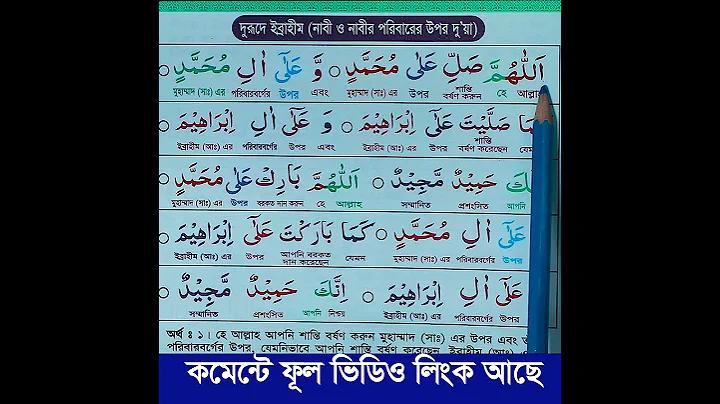 দুরূদে ইব্রাহীম (নাবী ও নাবীর পরিবারের উপর দু'য়া)
اَللّٰهُمَّ صَلِّ عَلٰى مُحَمَّدٍ ○ وَّ عَلٰٓى اٰلِ مُحَمَّدٍ ○
হে শান্তি বর্ষণ করুন উপর মুহাম্মাদ (সাঃ) এর এবং উপর পরিবারবর্গের মুহাম্মাদ (সাঃ) এর
صَلَّيْتَ عَلٰٓى اِبْرَاهِيْمَ ○ وَ عَلٰٓى اٰلِ اِبْرَاهِيْمَ ○
শান্তি বর্ষণ করেছেন উপর ইব্রাহীম (আঃ) এর এবং উপর পরিবারবর্গের ইব্রাহীম (আঃ) এর
حَمِيْدٌ مَّجِيْدٌ ○ اَللّٰهُمَّ بَارِكْ عَلٰى مُحَمَّدٍ
আপনি প্রশংসিত সম্মানিত আল্লাহ হে বরকত দান করুন উপর মুহাম্মাদ (সাঃ) এর
عَلٰٓى اٰلِ مُحَمَّدٍ ○ كَمَا بَارَكْتَ عَلٰٓى اِبْرَاهِيْمَ
উপর পরিবারবর্গের মুহাম্মাদ (সাঃ) এর যেমন আপনি বরকত দান করেছেন উপর ইব্রাহীম (আঃ) এর
عَلٰٓى اٰلِ اِبْرَاهِيْمَ ○ اِنَّكَ حَمِيْدٌ مَّجِيْدٌ ○
উপর পরিবারবর্গের ইব্রাহীম (আঃ) এর নিশ্চয় আপনি প্রশংসিত সম্মানিত
অর্থ ঃ ১। হে আল্লাহ আপনি শান্তি বর্ষণ করুন মুহাম্মাদ (সাঃ) এর উপর এবং
পরিবারবর্গের উপর, যেমনিভাবে আপনি শান্তি বর্ষণ করেছেন ইব্রাহীম (আঃ)
কমেন্টে ফুল ভিডিও লিংক আছে